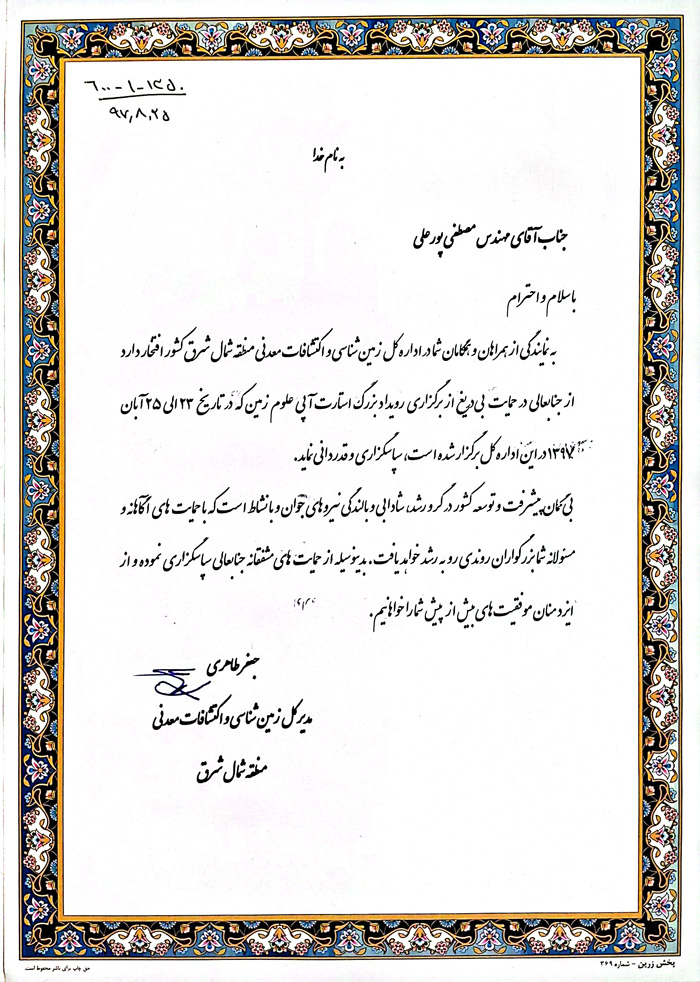 ۶۰۰-۱-۱۲۵۰
۹۷,۸,۲۵
به نام خدا
جناب آقای مهندس مصطفی پورعلی
با سلام و احترام
به نمایندگی از همراهان و همکامان شما در اداره کل زمین شناسی و اکتشافات معدنی منطقه شمال شرق کشور افتخار دارد
از جنابعالی در حمایت بی دریغ از برگزاری رویداد بزرگ استارت آپی علوم زمین که در تاریخ ۲۳ الی ۲۵ آبان
۱۳۹۷ در این اداره کل برگزار شده است، سپاسگزاری و قدردانی نماید.
بی گمان پیشرفت و توسعه کشور در گرو رشد، شادابی و بالندگی نیروهای جوان و با نشاط است که با حمایت های آگاهانه و
مسئولانه شما بزرگواران روندی رو به رشد خواهد یافت. بدینوسیله از حمایت های مشفقانه جنابعالی سپاسگزاری نموده و از
ایزد منان موفقیت های بیش از پیش شما را خواهانیم.
جعفر طاهری
مدیر کل زمین شناسی و اکتشافات معدنی
منطقه شمال شرق
پخش زرین - شماره ۳۶۹
حق چاپ برای ناشر محفوظ است